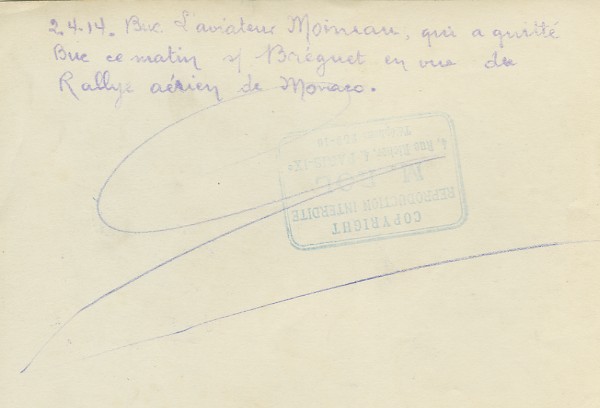 2.4.14. Buc L'aviateur Moineau, qui a quitté
Buc ce matin s/ Bréguet en vue du
Rallye aérien de Monaco.
COPYRIGHT
REPRODUCTION INTERDITE
M. ROL
4, Rue Richer, PARIS-IXe